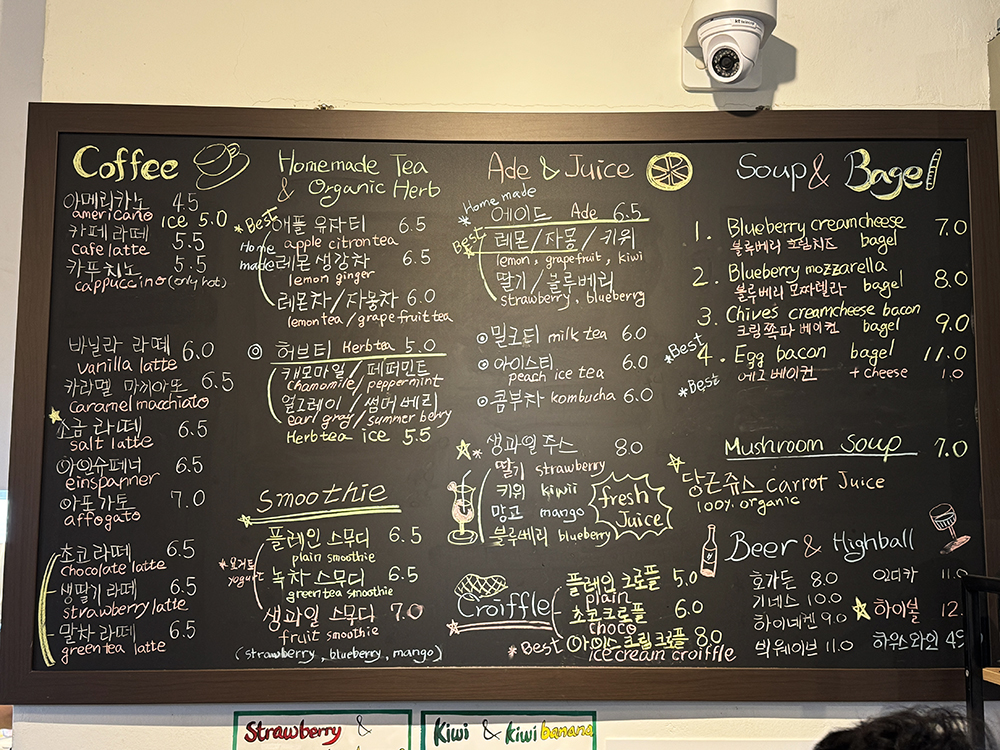 kt telecop
Coffee
아메리카노 4.5
americano ice 5.0
카페라떼 5.5
cafe latte
카푸치노 5.5
cappuccino (only hot)
바닐라 라떼 6.0
vanilla latte
카라멜 마끼아또 6.5
caramel macchiato
소금 라떼 6.5
salt latte
아인슈페너 6.5
einspanner
아포가토 7.0
affogato
초코라떼 6.5
chocolate latte
생딸기 라떼 6.5
strawberry latte
말차라떼 6.5
greentea latte
Homemade Tea
& Organic Herb
*Best
Home
made
애플 유자티 6.5
apple citron tea
레몬생강차 6.5
lemon ginger
레몬차/자몽차 6.0
lemon tea / grape fruit tea
허브티 Herbtea 5.0
캐모마일 / 페퍼민트
chamomile / peppermint
얼그레이 / 썸머베리
earl gray / summer berry
Herbtea ice 5.5
Smoothie
*요거트
yogurt
플레인 스무디 6.5
plain smoothie
녹차 스무디 6.5
greentea smoothie
생과일 스무디 7.0
fruit smoothie
(strawberry, blueberry, mango)
Ade & Juice
Home made
*
Best
에이드 Ade 6.5
레몬/자몽/키위
lemon, grapefruit, kiwi
딸기/블루베리
strawberry, blueberry
밀크티 milk tea 6.0
아이스티 6.0
peach ice tea
콤부차 kombucha 6.0
* 생과일 주스 8.0
딸기 strawberry
키위 kiwii
망고 mango
블루베리 blueberry
fresh
Juice
Croiffle
플레인 크로플 5.0
plain
초코크로플 6.0
choco
*Best 아이스크림크로플 8.0
icecream croiffle
Soup & Bagel
1. Blueberry creamcheese 7.0
블루베리 크림치즈 bagel
2. Blueberry mozzarella 8.0
블루베리 모짜렐라 bagel
3. Chives creamcheese bacon 9.0
크림쪽파 베이컨 bagel
*Best
4. Egg bacon bagel 11.0
*Best
에그 베이컨 +cheese 1.0
Mushroom Soup 7.0
당근쥬스 Carrot Juice
100% organic
Beer & Highball
호가든 8.0
기네스 10.0
하이네켄 9.0
빅웨이브 11.0
11.0
하이볼 12.
하우스와인
Strawberry &
Kiwi & kiwi banana